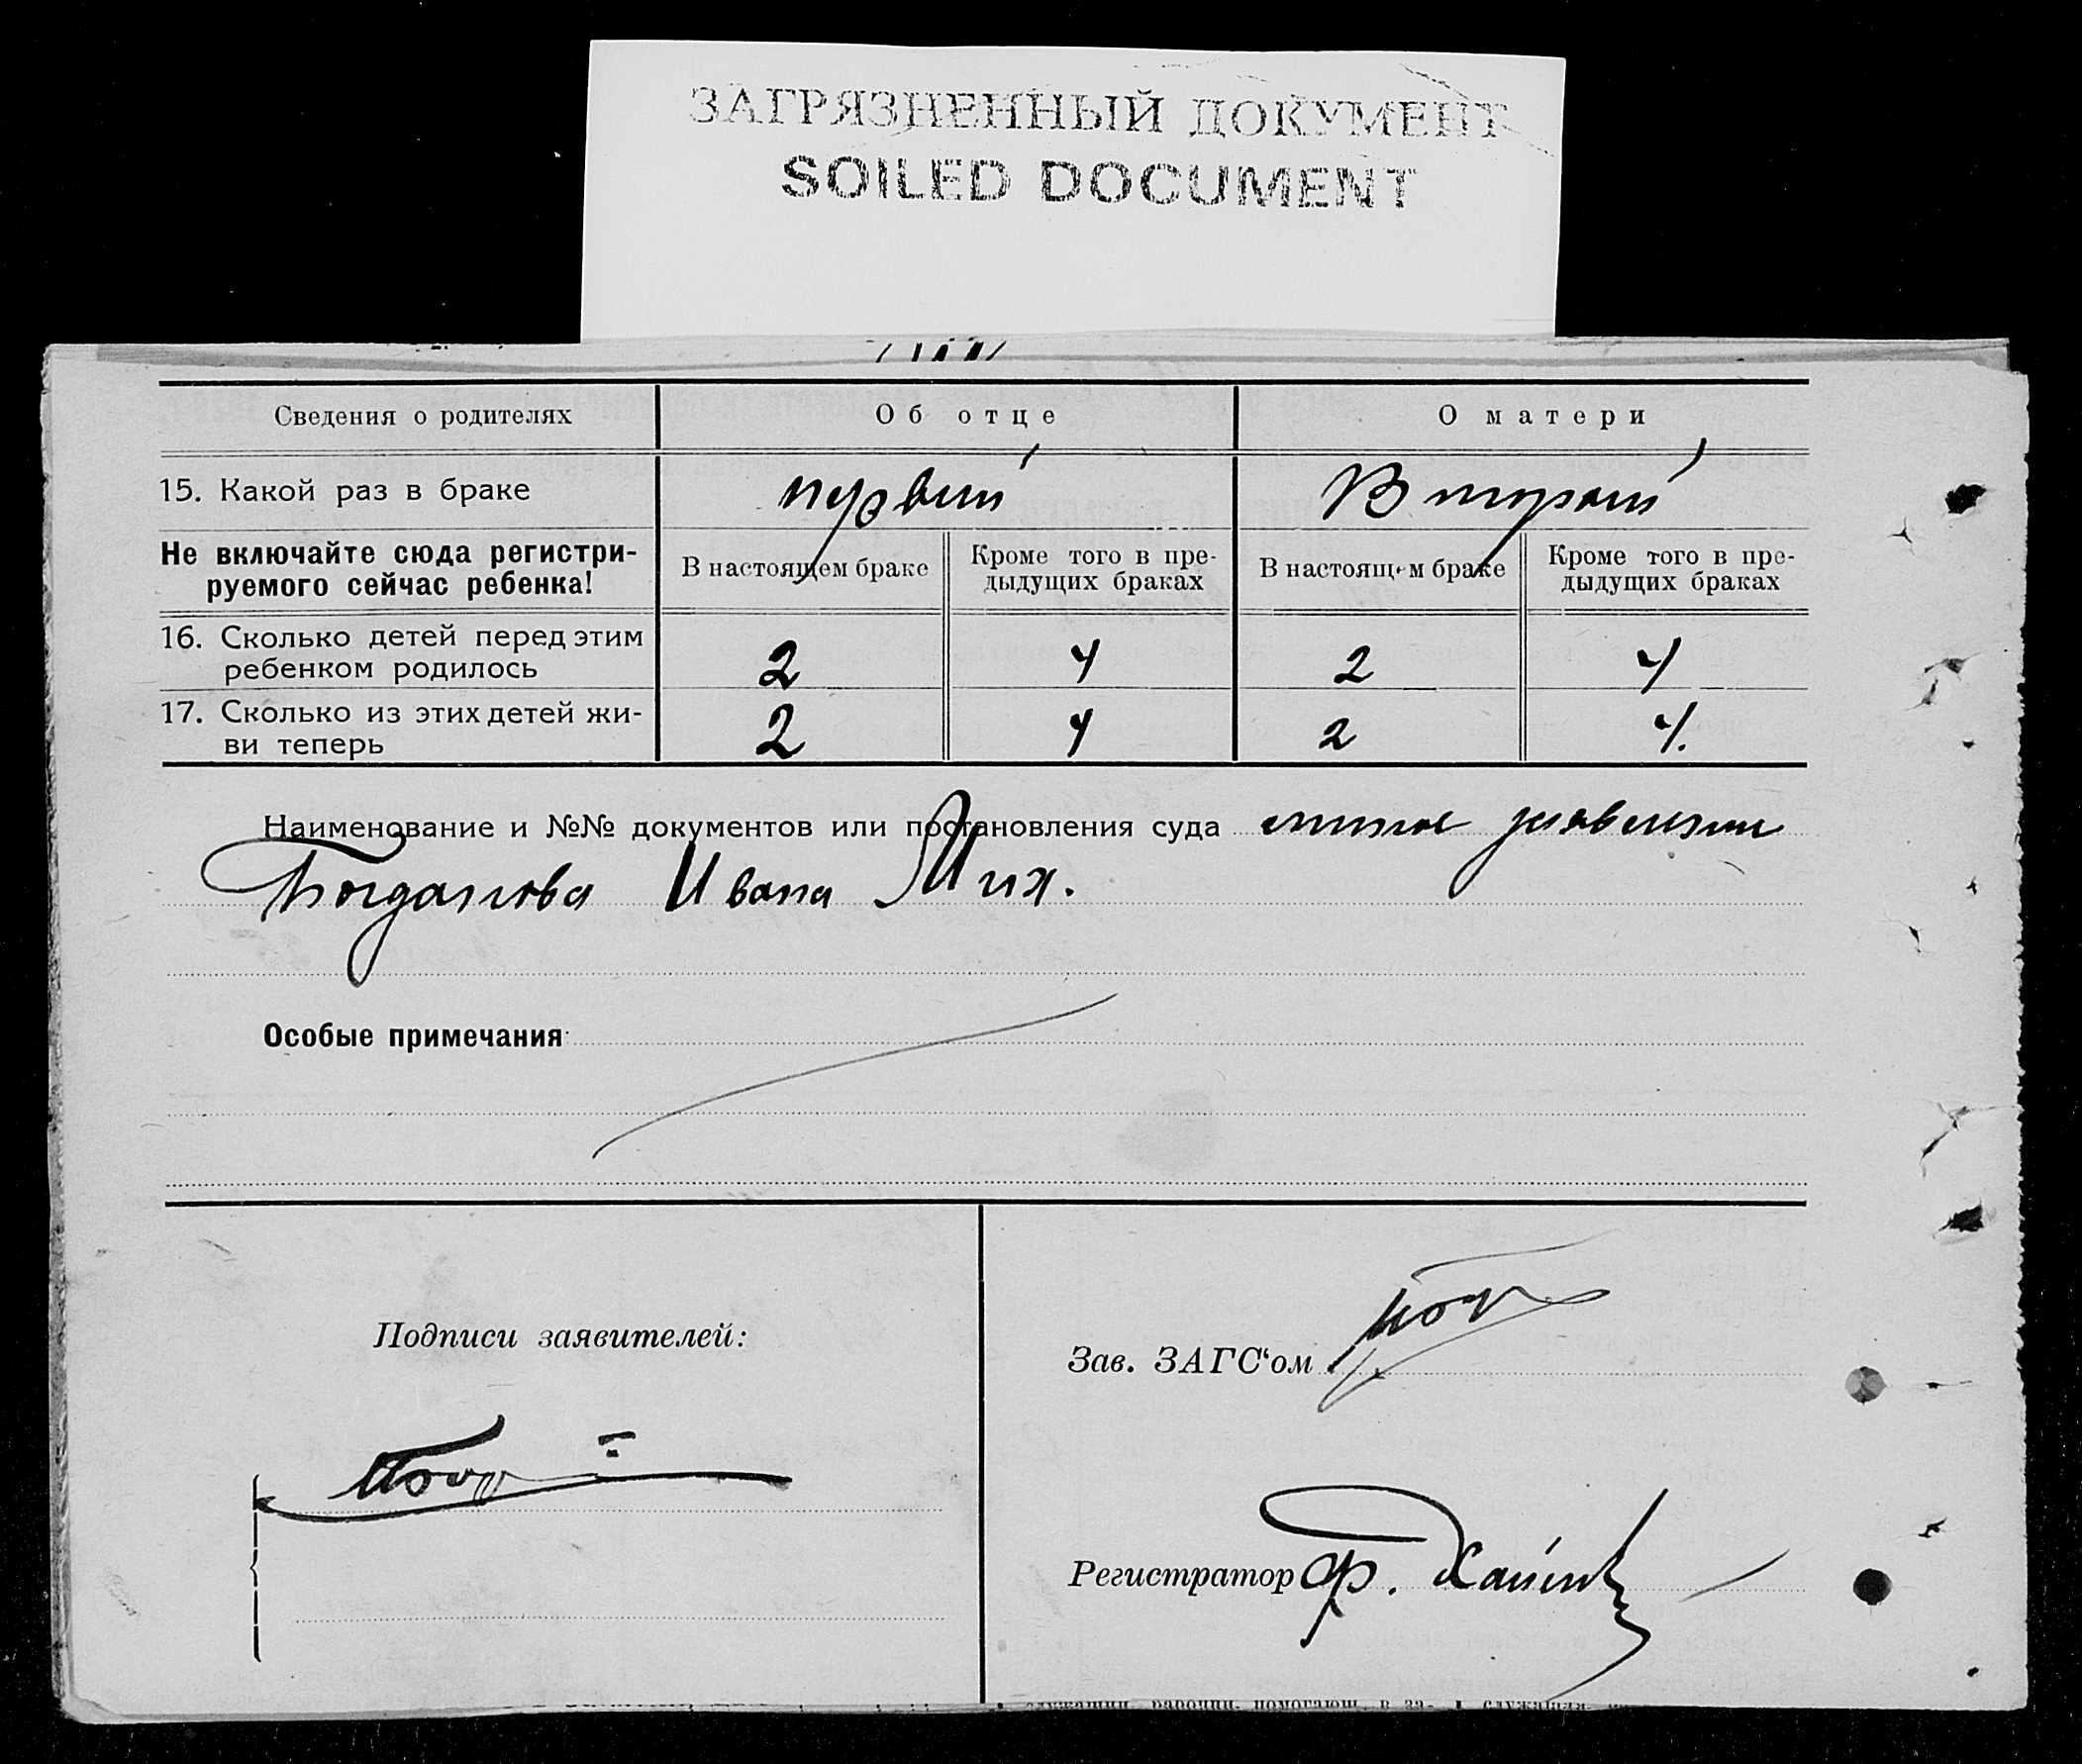 ЗАГРЯЗНЕННЫЙ ДОКУМЕНТ
SOILED DOCUMENT
Сведения о родителях Об отце О матери
15. Какой раз в браке первый Второй
Не включайте сюда регистри-
руемого сейчас ребенка!
В настоящем браке Кроме того в пре-
дыдущих браках В настоящем браке Кроме того в пре-
дыдущих браках
16. Сколько детей перед этим
ребенком родилось 2 4 2 4
17. Сколько из этих детей жи-
ви теперь 2 4 2 4.
Наименование и №№ документов или постановления суда личное заявление
Богданова Ивана Мих.
Особые примечания
Подписи заявителей:
Зав. ЗАГС‘ом
Регистратор Ф.